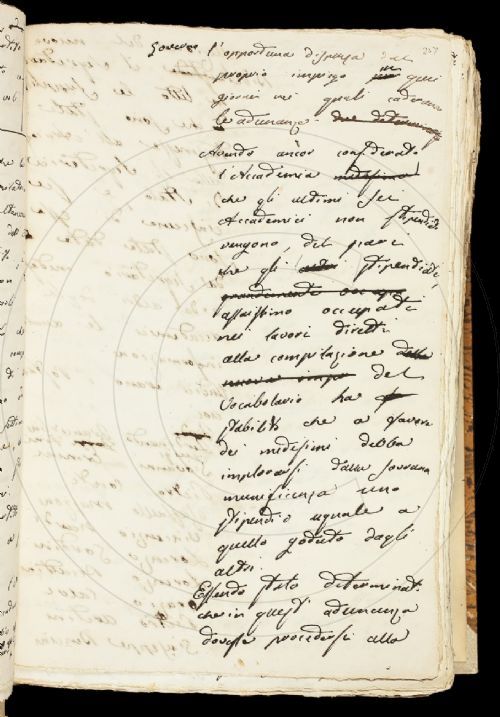 Governo l'opportuna dispensa dal
proprio impiego in quei
giorni nei quali caderanno
le adunanze.
Avendo ancor considerato
l'Accademia medesima
che gli ultimi sei
Accademici non stipendiati
vengono, del pari
che gli altri stipendiati,
grandemente occupati
assaissimo occupati
nei lavori diretti
alla compilazione della
del
Vocabolario ha
stabilito che a favore
dei medesimi debba
implorarsi dalla sovrana
munificenza uno
stipendio uguale a
quello goduto dagli
altri.
Essendo stato determinat.
che in quest' adunanza
dovesse procedersi alla